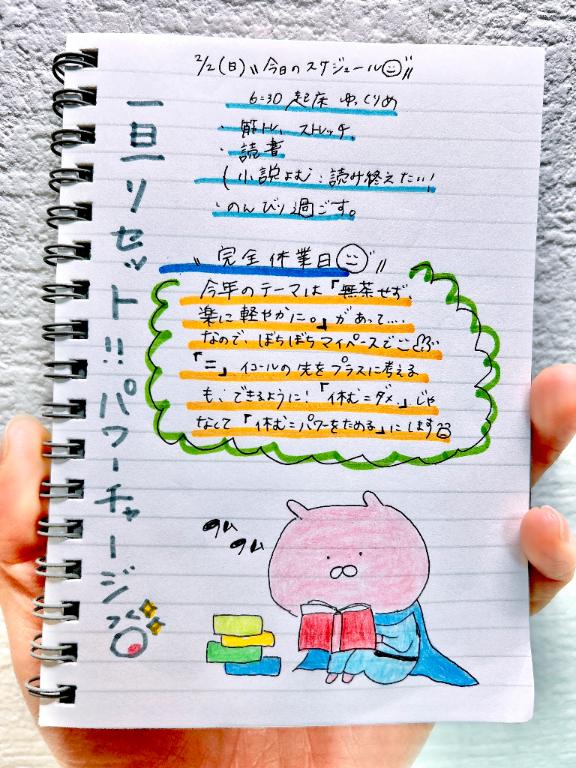 2/2(日)\\今日のスケジュール//
6:30 起床 ゆっくりめ
・筋トレ、ストレッチ
・読書
(小説よむ:読み終えたい!
・のんびり過ごす。
\\完全休業日//
今年のテーマは「無茶せず、
楽に軽やかに。」があって....
なので、ぼちぼちマイペースでご
「=」イコールの先をプラスに考える
も、できるように!「休む=ダメ。」じゃ
なくて「休む=パワーをためる」にします
一旦リセット!!パワーチャージ